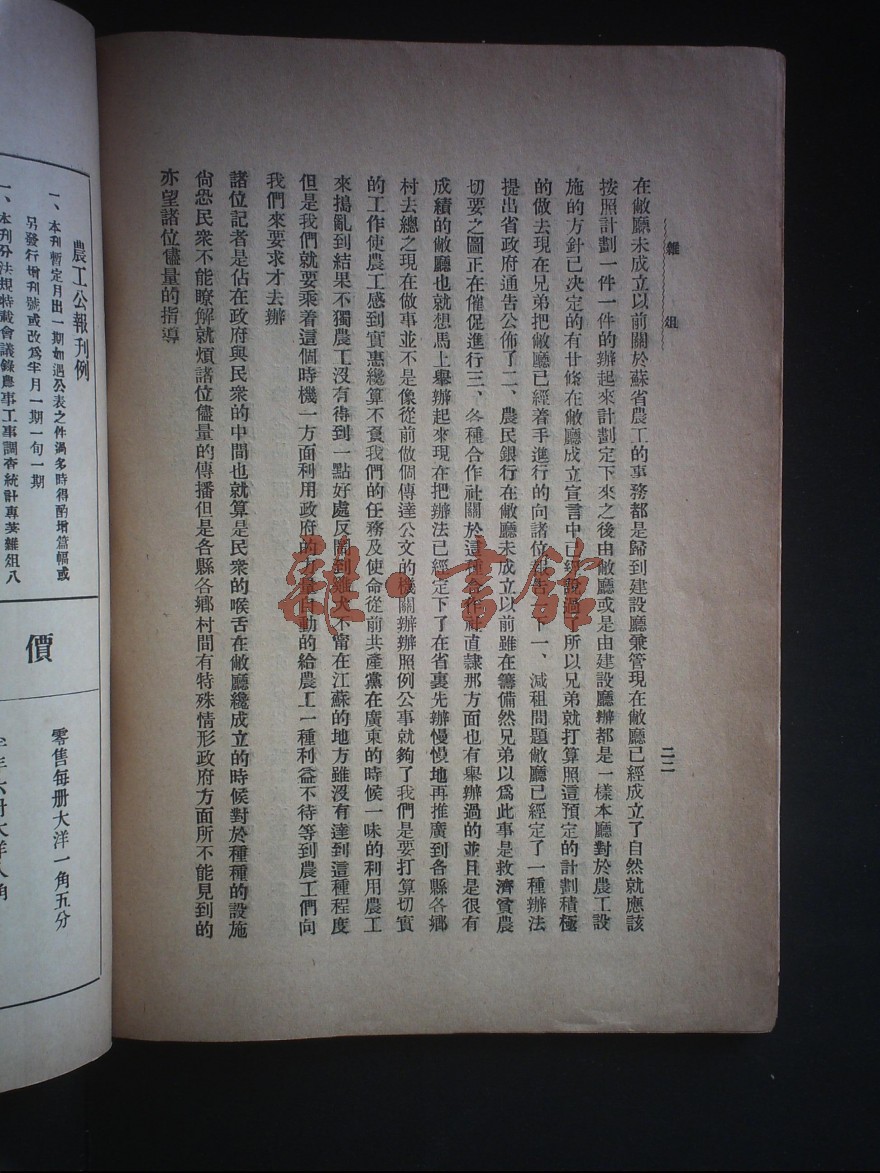 雜俎
二二
在敝廳未成立以前關於蘇省農工的事務都是歸到建設廳兼管現在敝廳已經成立了自然就應該
按照計劃一件一件的辦起來計劃定下來之後由敝廳或是由建設廳辦都是一樣本廳對於農工設
施的方針已決定的有廿條在敝廳成立宣言中已經說過了所以兄弟就打算照這預定的計劃積極
的做去現在兄弟把敝廳已經着手進行的向諸位報告一下一、減租問題敝廳已經定了一種辦法
提出省政府通告公佈了二、農民銀行在敝廳未成立以前雖在籌備然兄弟以爲此事是救濟貧農
切要之圖正在催促進行三、各種合作社關於這種合作社直隸那方面也有舉辦過的並且是很有
成績的敝廳也就想馬上舉辦起來現在把辦法已經定下了在省裏先辦慢慢地再推廣到各縣各鄉
村去總之現在做事並不是像從前做個傳達公文的機關辦辦照例公事就夠了我們是要打算切實
的工作使農工感到實惠纔算不負我們的任務及使命從前共產黨在廣東的時候一味的利用農工
來搗亂到結果不獨農工沒有得到一點好處反鬧到雞犬不甯在江蘇的地方雖沒有達到這種程度
但是我們就要乘着這個時機一方面利用政府的力量自動的給農工一種利益不待等到農工們向
我們來要求才去辦
諸位記者是佔在政府與民衆的中間也就算是民衆的喉舌在敝廳纔成立的時候對於種種的設施
尙恐民衆不能瞭解就煩諸位儘量的傳播但是各縣各鄉村間有特殊情形政府方面所不能見到的
亦望諸位儘量的指導
農工公報刊例
一、本刊暫定月出一期如遇公表之件過多時得酌增篇幅或
另發行增刊號或改爲半月一期一旬一期
一、本刊分法規特載會議錄農事工事調查統計專英雜俎八
價
零售每册大洋一角五分
雜·書館